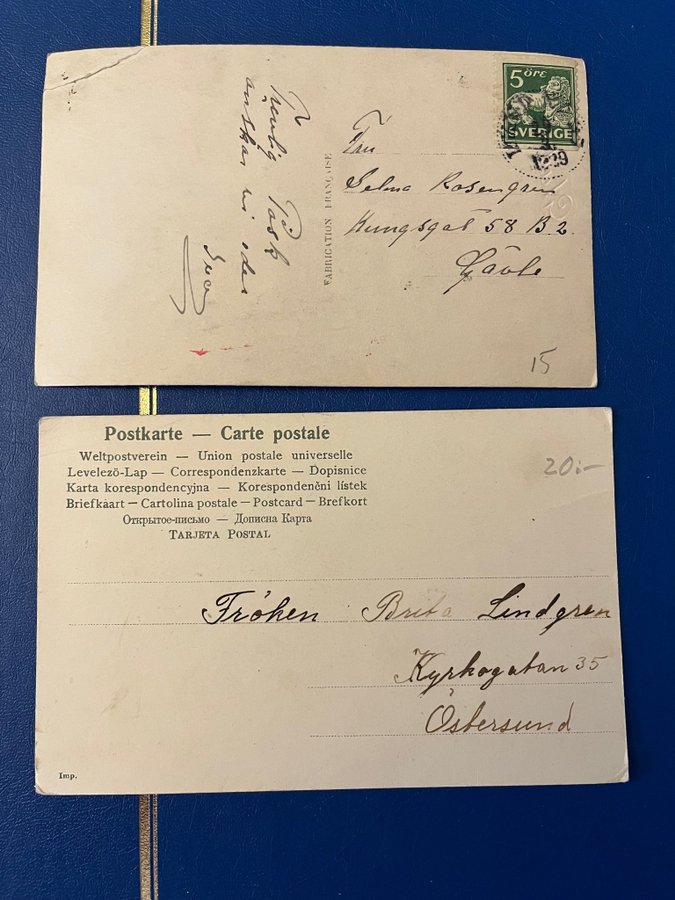 Trevlig Påsk
önskar vi eder
FABRICATION FRANÇAISE
5 ÖRE
SVERIGE
1929
Fru
Selma Rosengren
Kungsgat 58 B 2
Gävle
15
Postkarte — Carte postale
Weltpostverein — Union postale universelle
Levelező-Lap — Correspondenzkarte — Dopisnice
Karta korespondencyjna — Korespondenční lístek
Briefkaart — Cartolina postale — Postcard — Brefkort
Открытое-письмо — Дописна Карта
TARJETA POSTAL
20:-
Fröken Brita Lindgren
Kyrkogatan 35
Östersund
Imp.